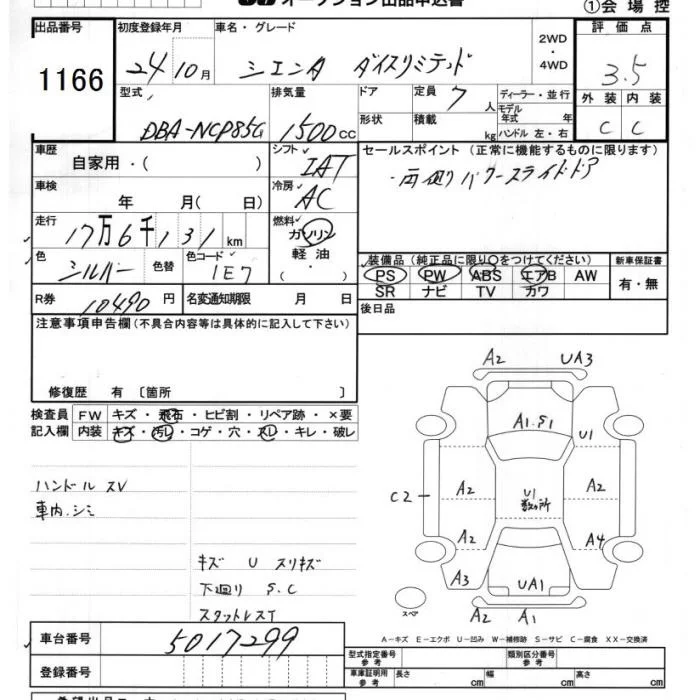 オークション出品申込書
①会場控
出品番号 初度登録年月 車名・グレード 2WD・4WD 評価点
1166 24 10月 シエンタ ダイスリミテッド 3.5
型式 排気量 ドア 定員 7人 ディーラー・並行 外装 内装
DBA-NCP85G 1500cc 形状 積載 kg モデル年式 年 ハンドル 左・右 C C
車歴 自家用・( ) シフト IAT セールスポイント (正常に機能するものに限ります)
・両側パワースライドドア
車検 年 月( 日) 冷房 AC
走行 17万6千131km 燃料 ガソリン
軽油
・
( )
色 シルバー 色替 色コード 1E7 装備品(純正品に限り○をつけてください) 新車保証書
PS PW ABS エアB AW 有・無
SR ナビ TV カワ
R券 10490円 名変通知期限 月 日 後日品
注意事項申告欄(不具合内容等は具体的に記入して下さい)
修復歴 有〔箇所 〕
検査員 FW キズ・飛石・ヒビ割・リペア跡・×要
記入欄 内装 キズ・汚レ・コゲ・穴・スレ・キレ・破レ
ハンドルスレ
車内シミ
キズ U スリキズ
下廻り S.C
スタットレスT
A2 UA3
A1.S1
U1
C2 A2 U1 数ヶ所 A2
A2 A4
A3 UA1
スペア A2 A1
A-キズ E-エクボ U-凹み W-補修跡 S-サビ C-腐食 XX-交換済
車台番号 5017299
型式指定番号 参考 類別区分番号 参考
登録番号 車庫証明用 参考 長さ cm 幅 cm 高さ cm